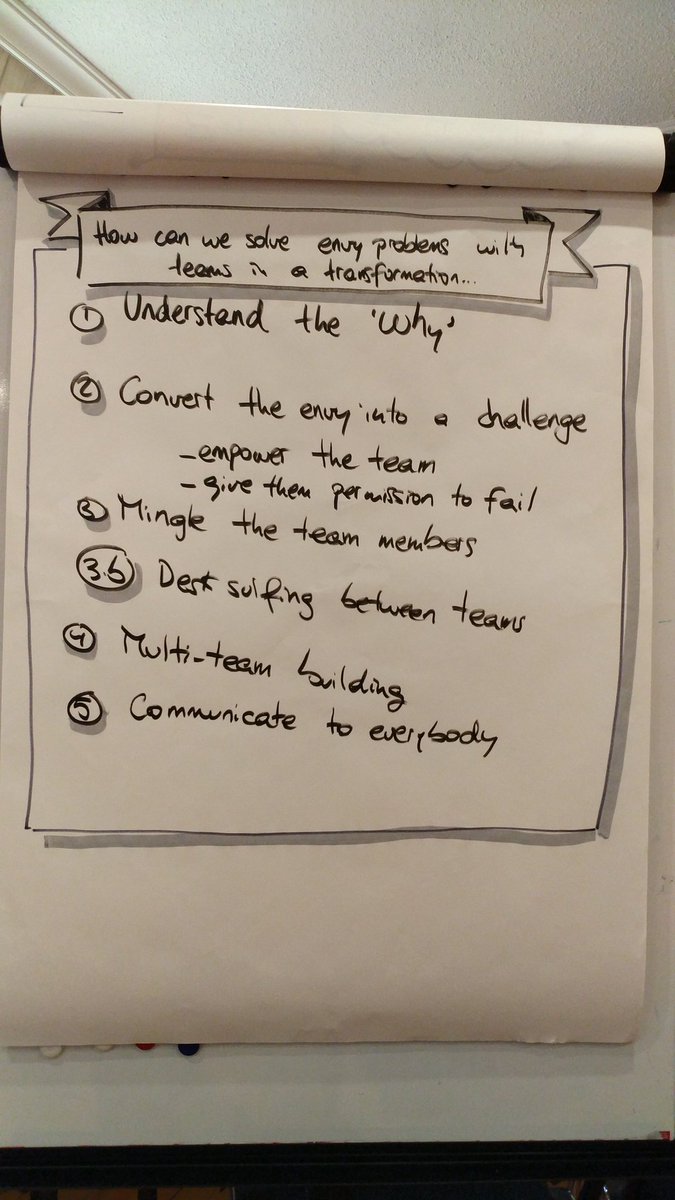 How can we solve envy problems with
teams in a transformation...
① Understand the 'Why'
② Convert the envy into a challenge
- empower the team
- give them permission to fail
③ Mingle the team members
3.b Desk sulfing between teams
④ Multi-team building
⑤ Communicate to everybody